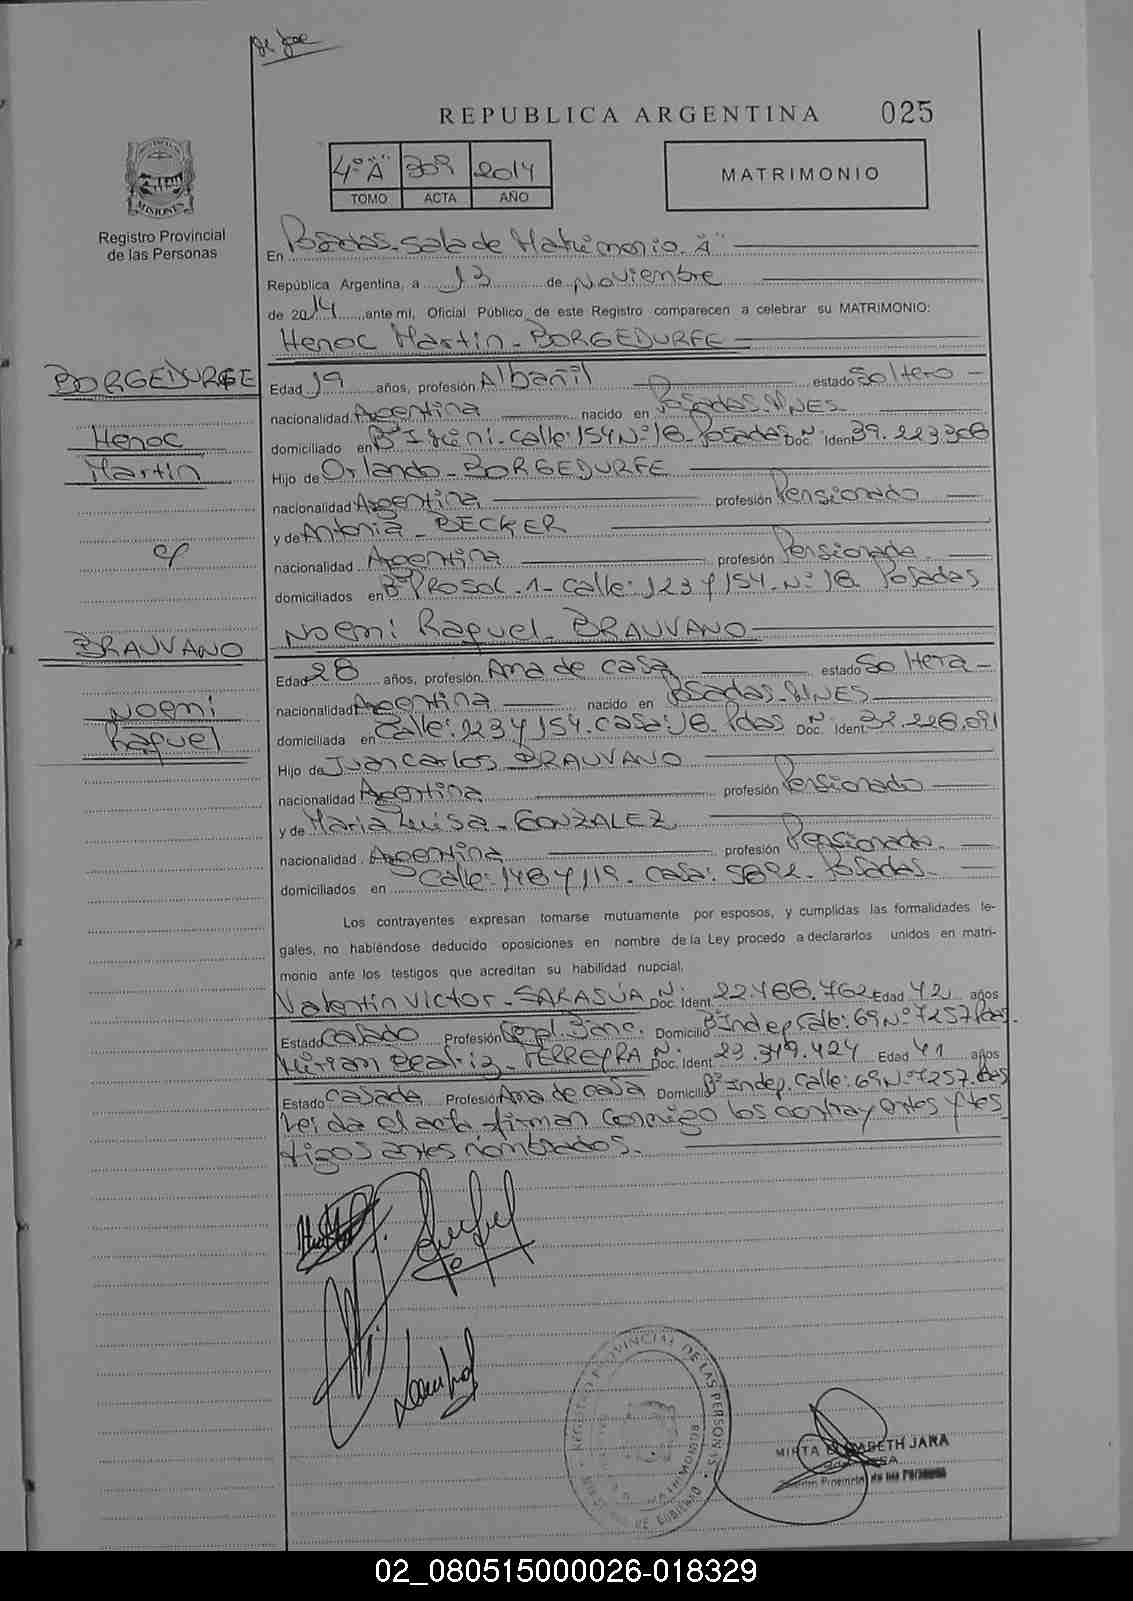 REPUBLICA ARGENTINA 025
4º "A" 309 2014
TOMO ACTA AÑO
MATRIMONIO
MISIONES
Registro Provincial
de las Personas
En Posadas. Sala de Matrimonio. "A"
República Argentina, a 13 de Noviembre
de 2014 ante mi, Oficial Público de este Registro comparecen a celebrar su MATRIMONIO:
Henoc Martin - BORGEDURFE
BORGEDURFE
Henoc
Martin
Edad 19 años, profesión Albañil estado Soltero
nacionalidad Argentina nacido en Posadas. MNES
domiciliado en Bº Irieni. Calle: 154 Nº 18. Posadas Doc. Nº Iden 39.223.308
Hijo de Orlando - BORGEDURFE
nacionalidad Argentina profesión Pensionado
y de Antonia - BECKER
nacionalidad Argentina profesión Pensionada
domiciliados en Bº PROSOL - 1 - Calle: 123 y 154. Nº 18. Posadas
Noemi Raquel - BRAUVANO
BRAUVANO
Noemi
Raquel
Edad 28 años, profesión Ama de casa estado Soltera
nacionalidad Argentina nacido en Posadas. MNES
domiciliada en Calle: 123 y 154. Casa: 18. Pdas Doc. Nº Ident 32.228.091
Hijo de Juan Carlos BRAUVANO
nacionalidad Argentina profesión Pensionado
y de Maria Luisa - GONZALEZ
nacionalidad Argentina profesión Pensionada.
domiciliados en Calle: 148 y 119. Casa: 5892. Posadas.
Los contrayentes expresan tomarse mutuamente por esposos, y cumplidas las formalidades le-
gales, no habiéndose deducido oposiciones en nombre de la Ley procedo a declararlos unidos en matri-
monio ante los testigos que acreditan su habilidad nupcial,
Valentin Victor - SARASÚA Doc. Nº Ident 22.488.762 Edad 42 años
Estado Casado Profesión Domicilio Bº Indep. Calle: 69 Nº 7257 Pdas.
Miriam Beatriz - FERREYRA Doc. Nº Ident 23.349.424 Edad 41 años
Estado Casada Profesión Ama de casa Domicilio Bº Indep. Calle: 69 Nº 7257. Pdas
Leida el acta firman conmigo los contrayentes y tes
tigos antes nombrados.
REGISTRO PROVINCIAL DE LAS PERSONAS
MATRIMONIOS
DE GOBIERNO
MIRTA ELIZABETH JARA
Provincial de las Personas
02_080515000026-018329